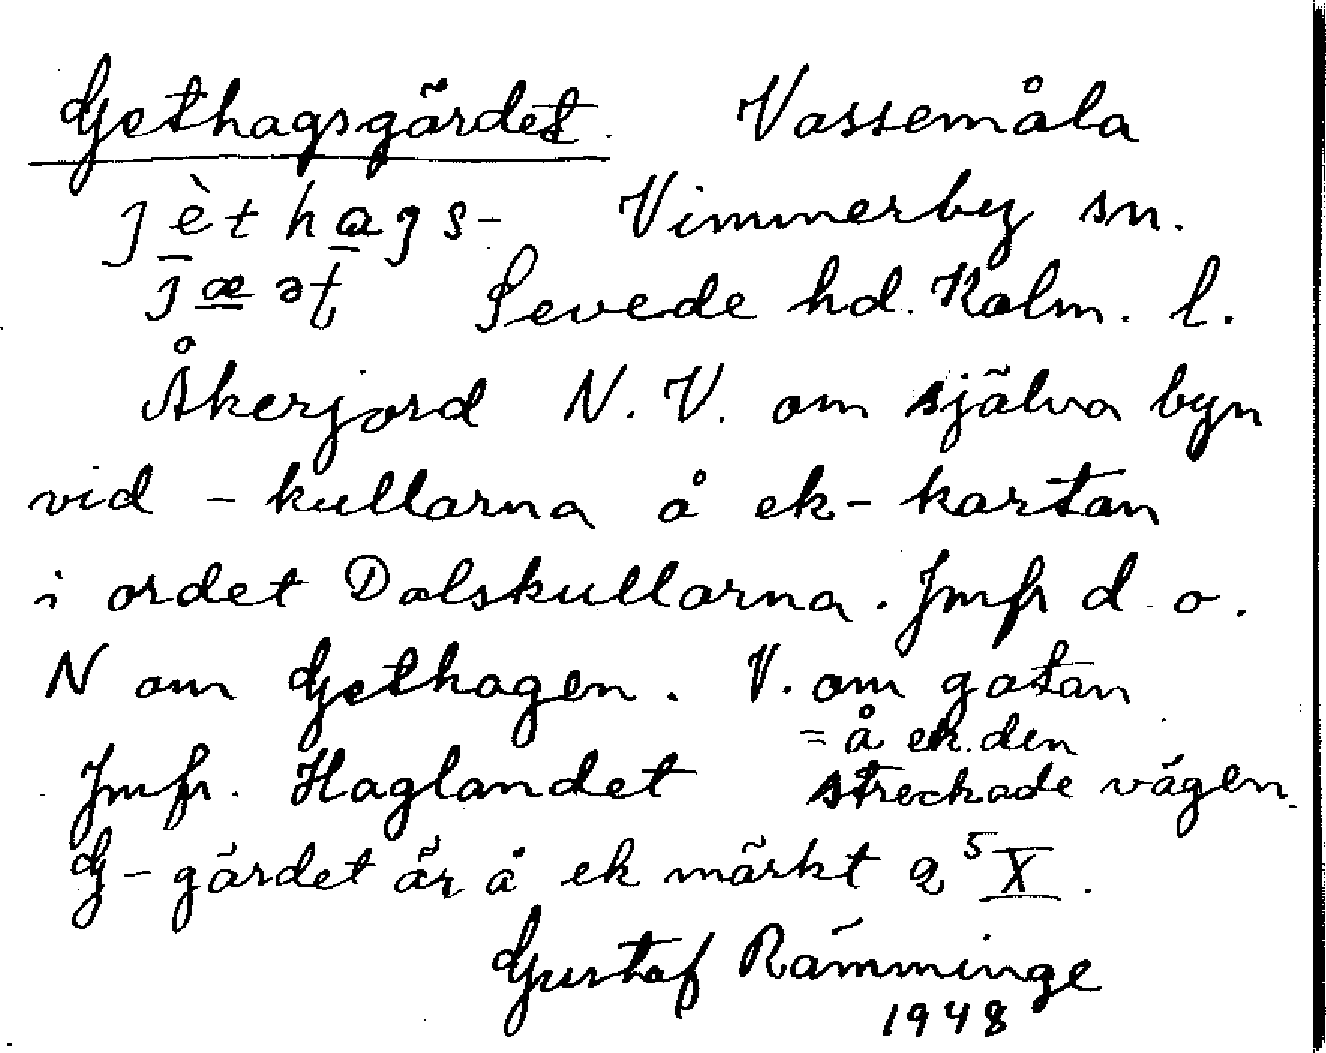 Gethagsgärdet. Vassemåla
jèthags- Vimmerby sn.
jæ ət Sevede hd. Kalm. l.
Åkerjord N. V. om själva byn
vid - kullarna å ek- kartan
i ordet Dalskullarna. Jmfr d. o.
N om Gethagen. V. om gatan
= å ek. den
Jmfr. Haglandet streckade vägen.
G-gärdet är å ek märkt a 5 X.
Gustaf Rämminge
1948